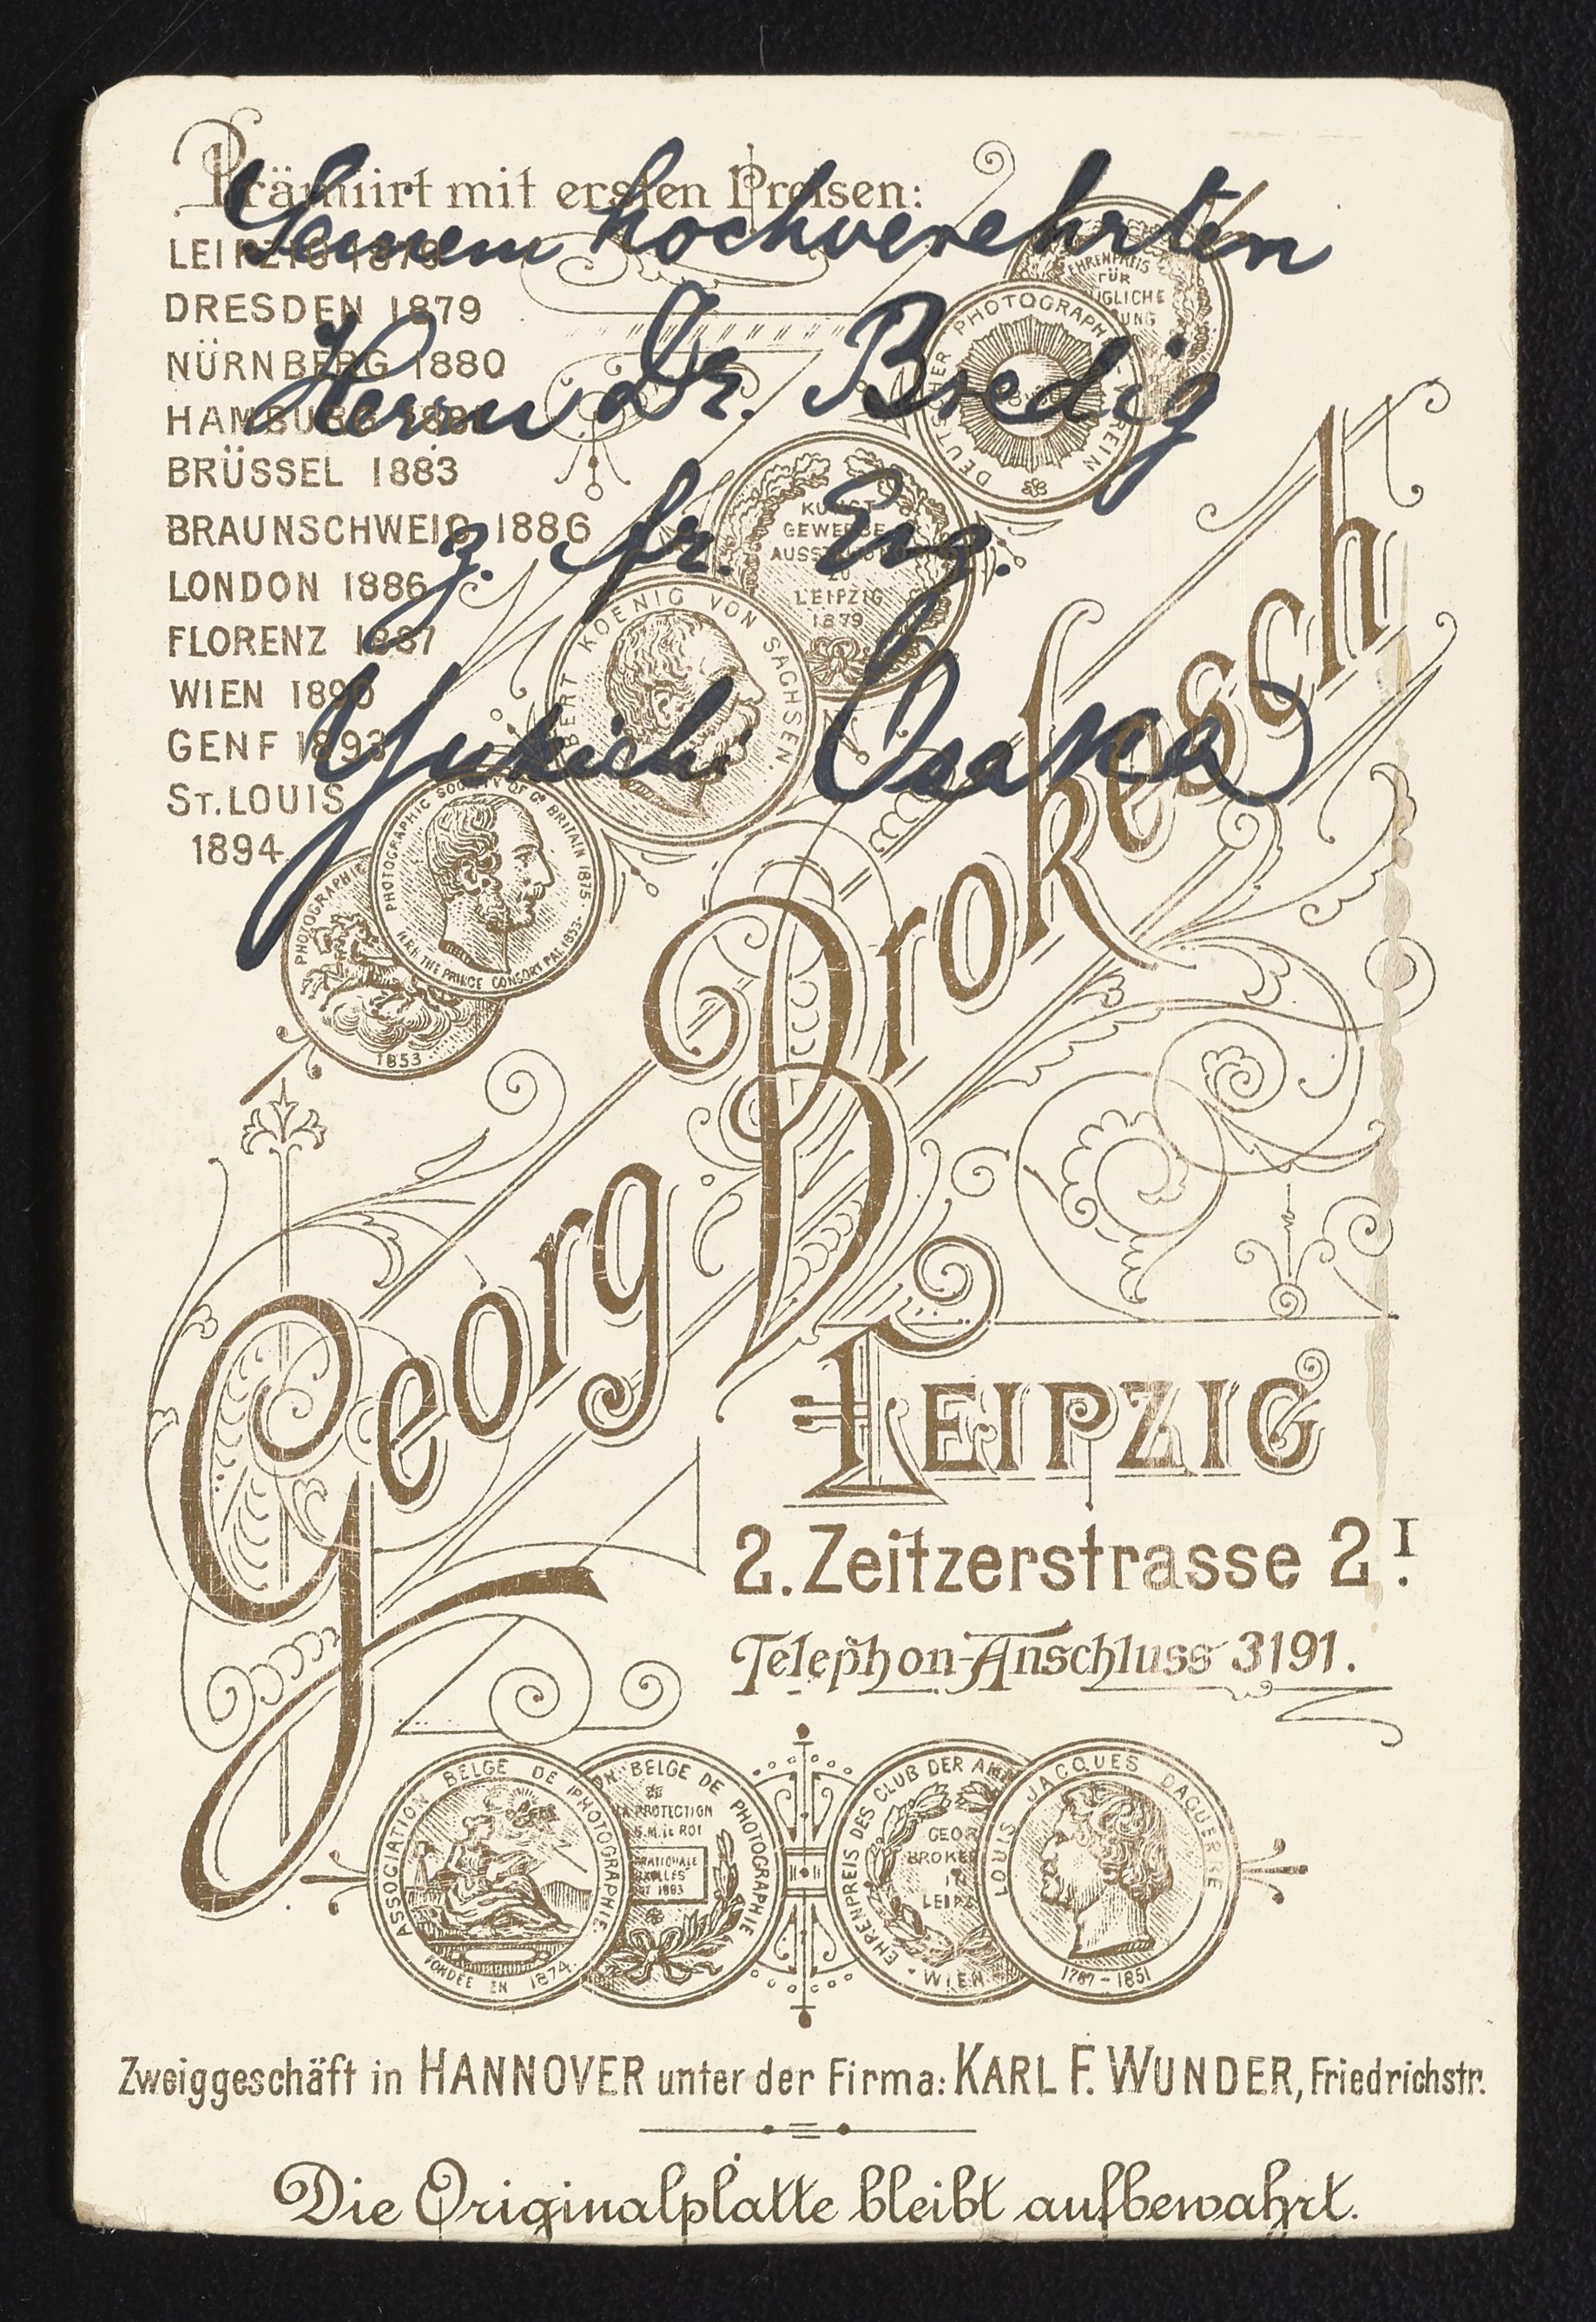 Prämiirt mit ersten Preisen:
Seinem hochverehrten
LEIPZIG 1879
DRESDEN 1879
Herrn Dr. Bredig
NÜRNBERG 1880
HAMBURG
BRÜSSEL 1883
z. fr. Erg.
BRAUNSCHWEIG 1886
LONDON 1886
FLORENZ 1887
Yukichi Osaka
WIEN 1890
GENF 1893
ST. LOUIS
1894
EHRENPREIS
FÜR
DEUTSCHER PHOTOGRAPH. VEREIN
KUNST
GEWERBE
AUSSTELLUNG
ZU
LEIPZIG
1879
ALBERT KOENIG VON SACHSEN
PHOTOGRAPHIC SOCIETY OF Gt. BRITAIN 1875
H.R.H. THE PRINCE CONSORT PAT. 1853
PHOTOGRAPHIC
1853
Georg Brokesch
LEIPZIG
2. Zeitzerstrasse 2 I.
Telephon-Anschluss 3191.
ASSOCIATION BELGE DE PHOTOGRAPHIE
FONDÉE EN 1874
BELGE DE PHOTOGRAPHIE
PROTECTION
S.M. LE ROI
1883
EHRENPREIS DES CLUB DER
GEORG
BROKESCH
IN
LEIPZIG
WIEN
LOUIS JACQUES DAGUERRE
1787-1851
Zweiggeschäft in HANNOVER unter der Firma: KARL F. WUNDER, Friedrichstr.
Die Originalplatte bleibt aufbewahrt.